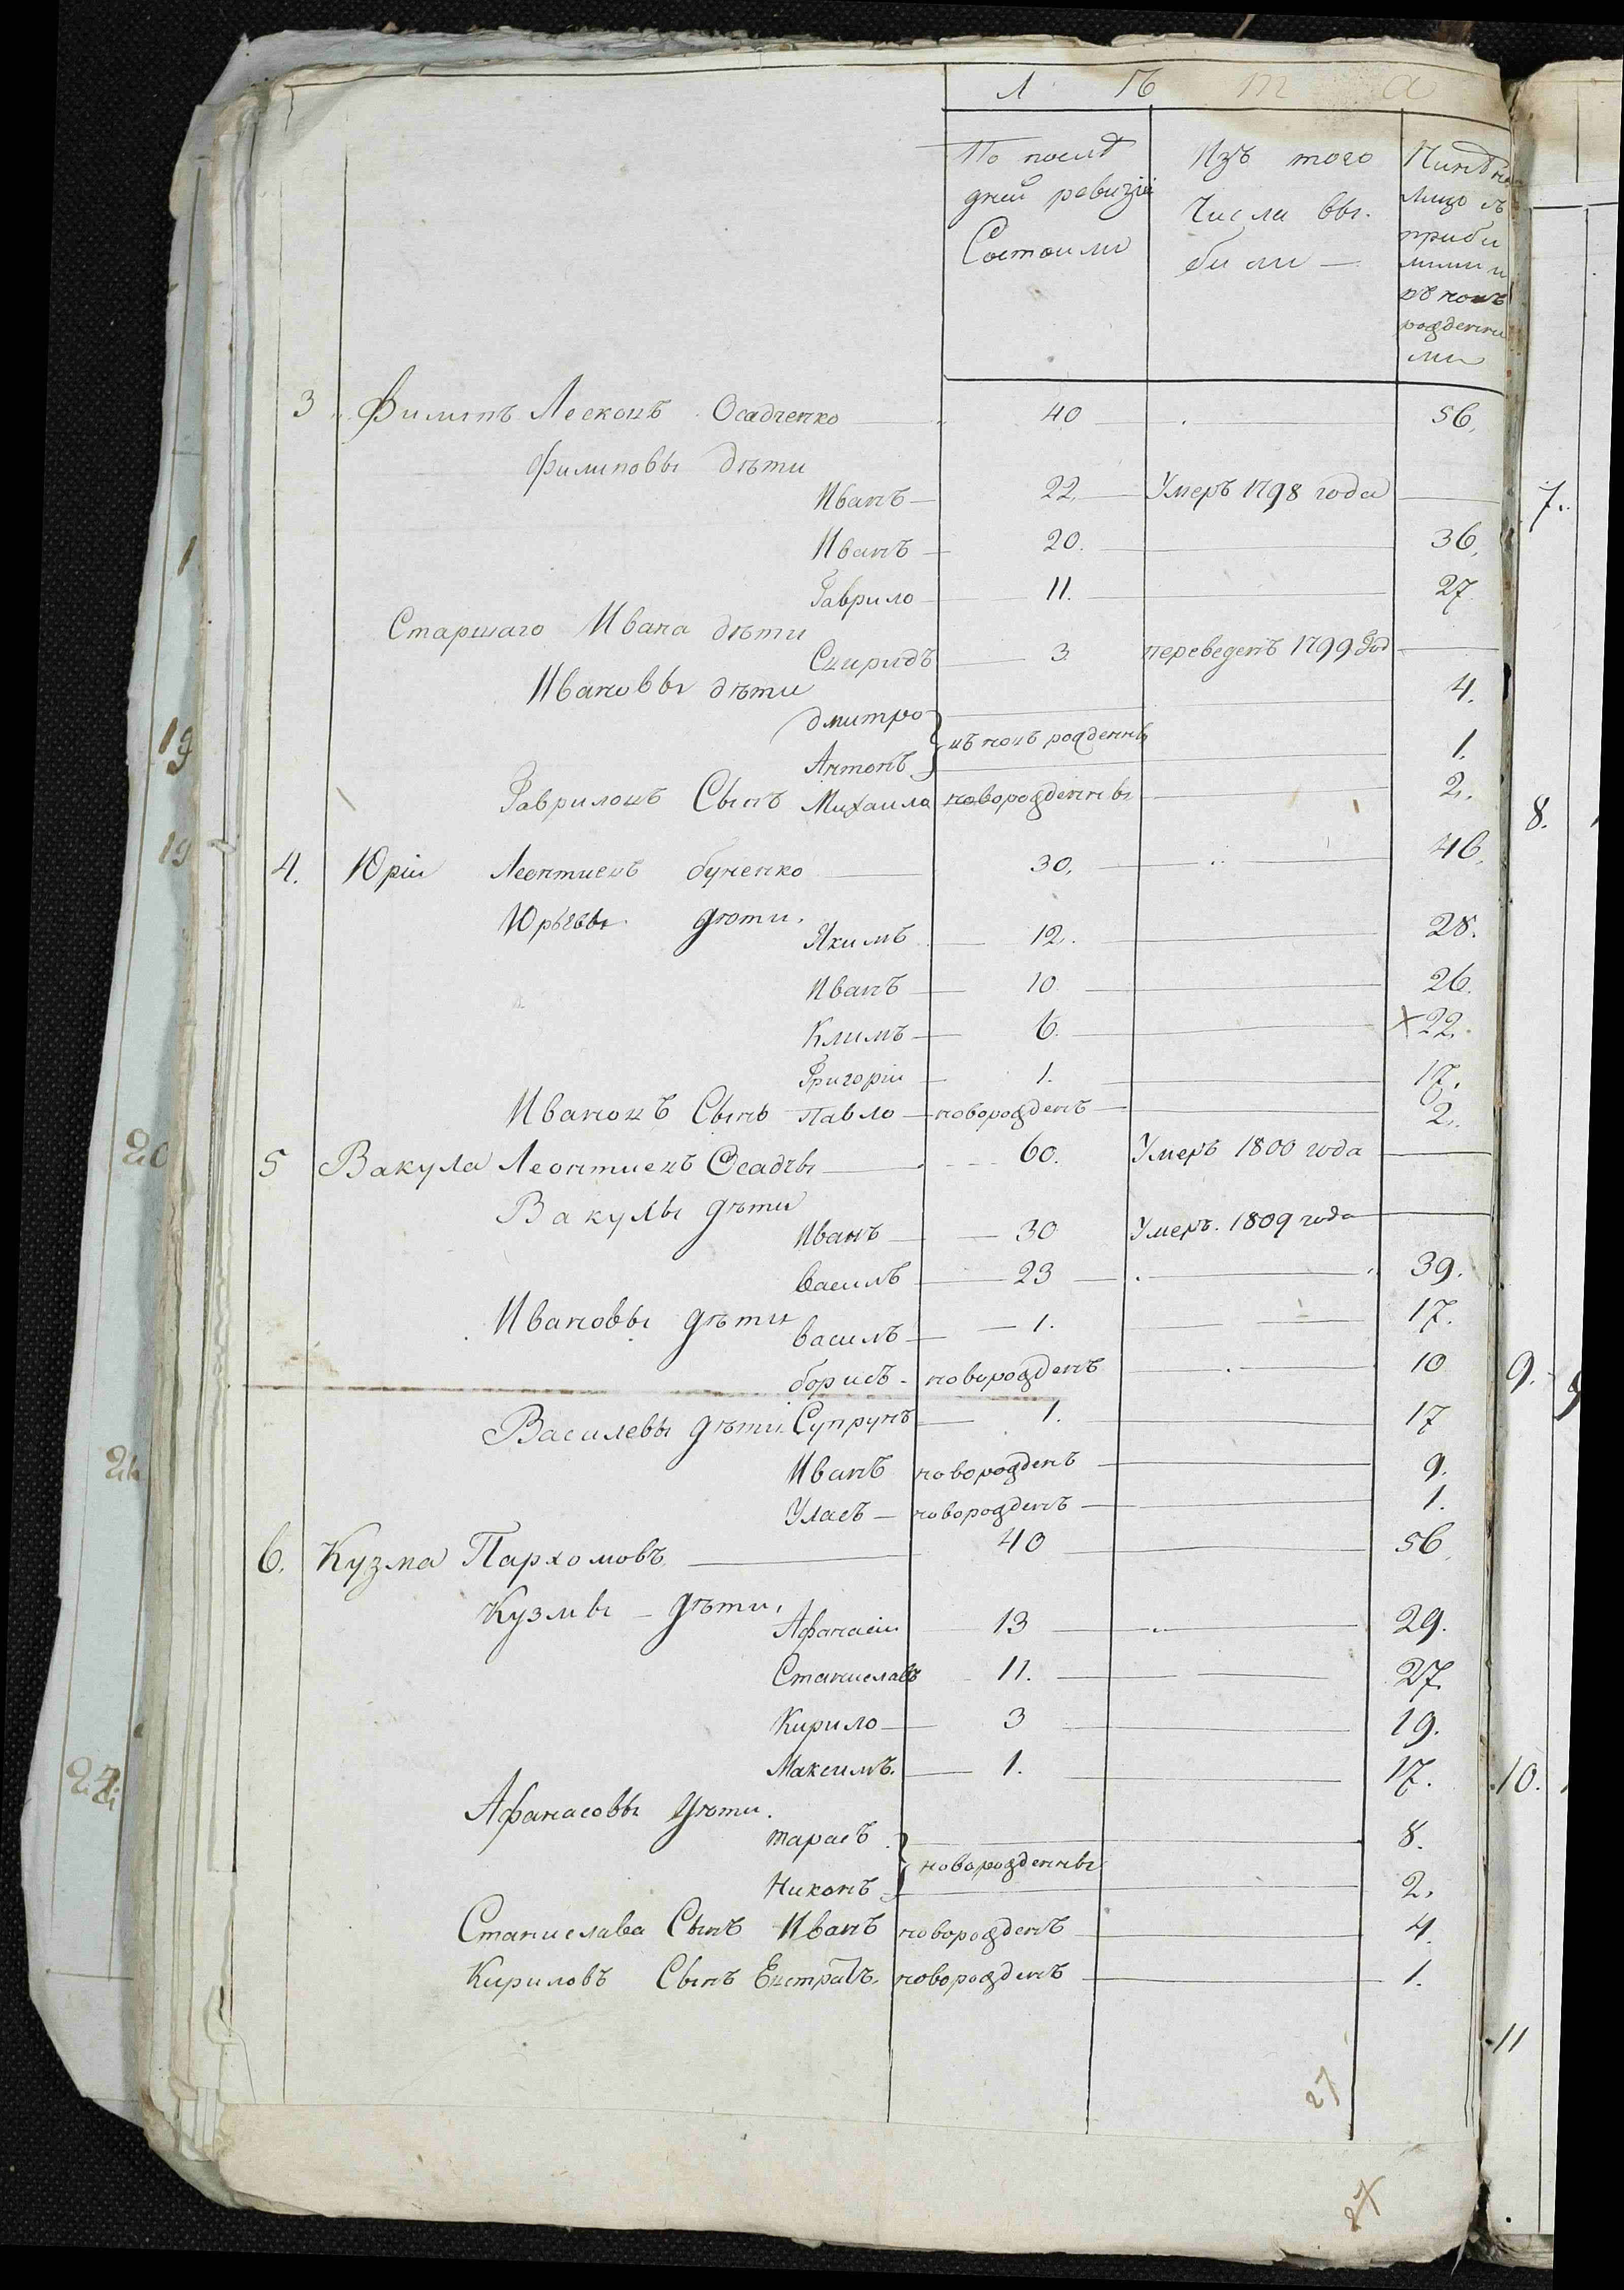 Л ѣ т а
По послѣ
дней ревизіи
Состоили
Изъ того
Числа вы.
били —
Нинѣ на
лицо съ
приби
лими и
рожденни
ми
3 Филипъ Лесковъ Осадченко 40 56.
Филиповы дѣти
Иванъ 22. Умеръ 1798 года
Иванъ 20. 36.
Гаврило 11. 27
Старшаго Ивана дѣти
Спиридъ 3 переведенъ 1799 год
Ивановы дѣти
дмитро 4.
Антонъ 1.
Гавриловъ Сынъ Михаила новорожденны 2.
4. Юрій Леонтиевъ бученко 30. 46.
Юрьевы дѣти.
Якимъ 12. 28.
Иванъ 10 26.
Климъ 6. х 22.
Григорій 1. 17.
Ивановъ Сынъ Павло новорожденъ 2.
5 Вакула Леонтиевъ Осадчы 60. Умеръ 1800 года
Вакулы дѣти
Иванъ 30 Умеръ. 1809 года
василъ 23 39.
Ивановы дѣти
василъ 1. 17.
борисъ новорожденъ 10
Василевы дѣти Супрунъ 1. 17
Иванъ новорожденъ 9.
Уласъ новорожденъ 1.
6. Кузма Пархомовъ 40 56.
Кузмы дѣти,
Афанасій 13 29.
Станиславъ 11. 27.
Кирило 3 19.
Максимъ. 1. 17.
Афанасовы дѣти.
тарасъ 8.
новорожденны
Никонъ 2.
Станислава Сынъ Иванъ новорожденъ 4.
Кириловъ Сынъ Евстратъ. новорожденъ 1.
27
27
1
19
19
20
7.
8.
9.
10.
11